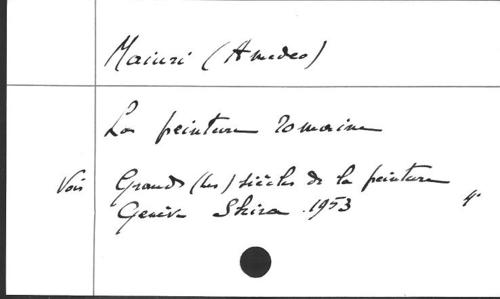 Maiuri (Amedeo)
La peinture romaine
Voir Grands (les) siècles de la peinture
Genève Skira .1953 4°